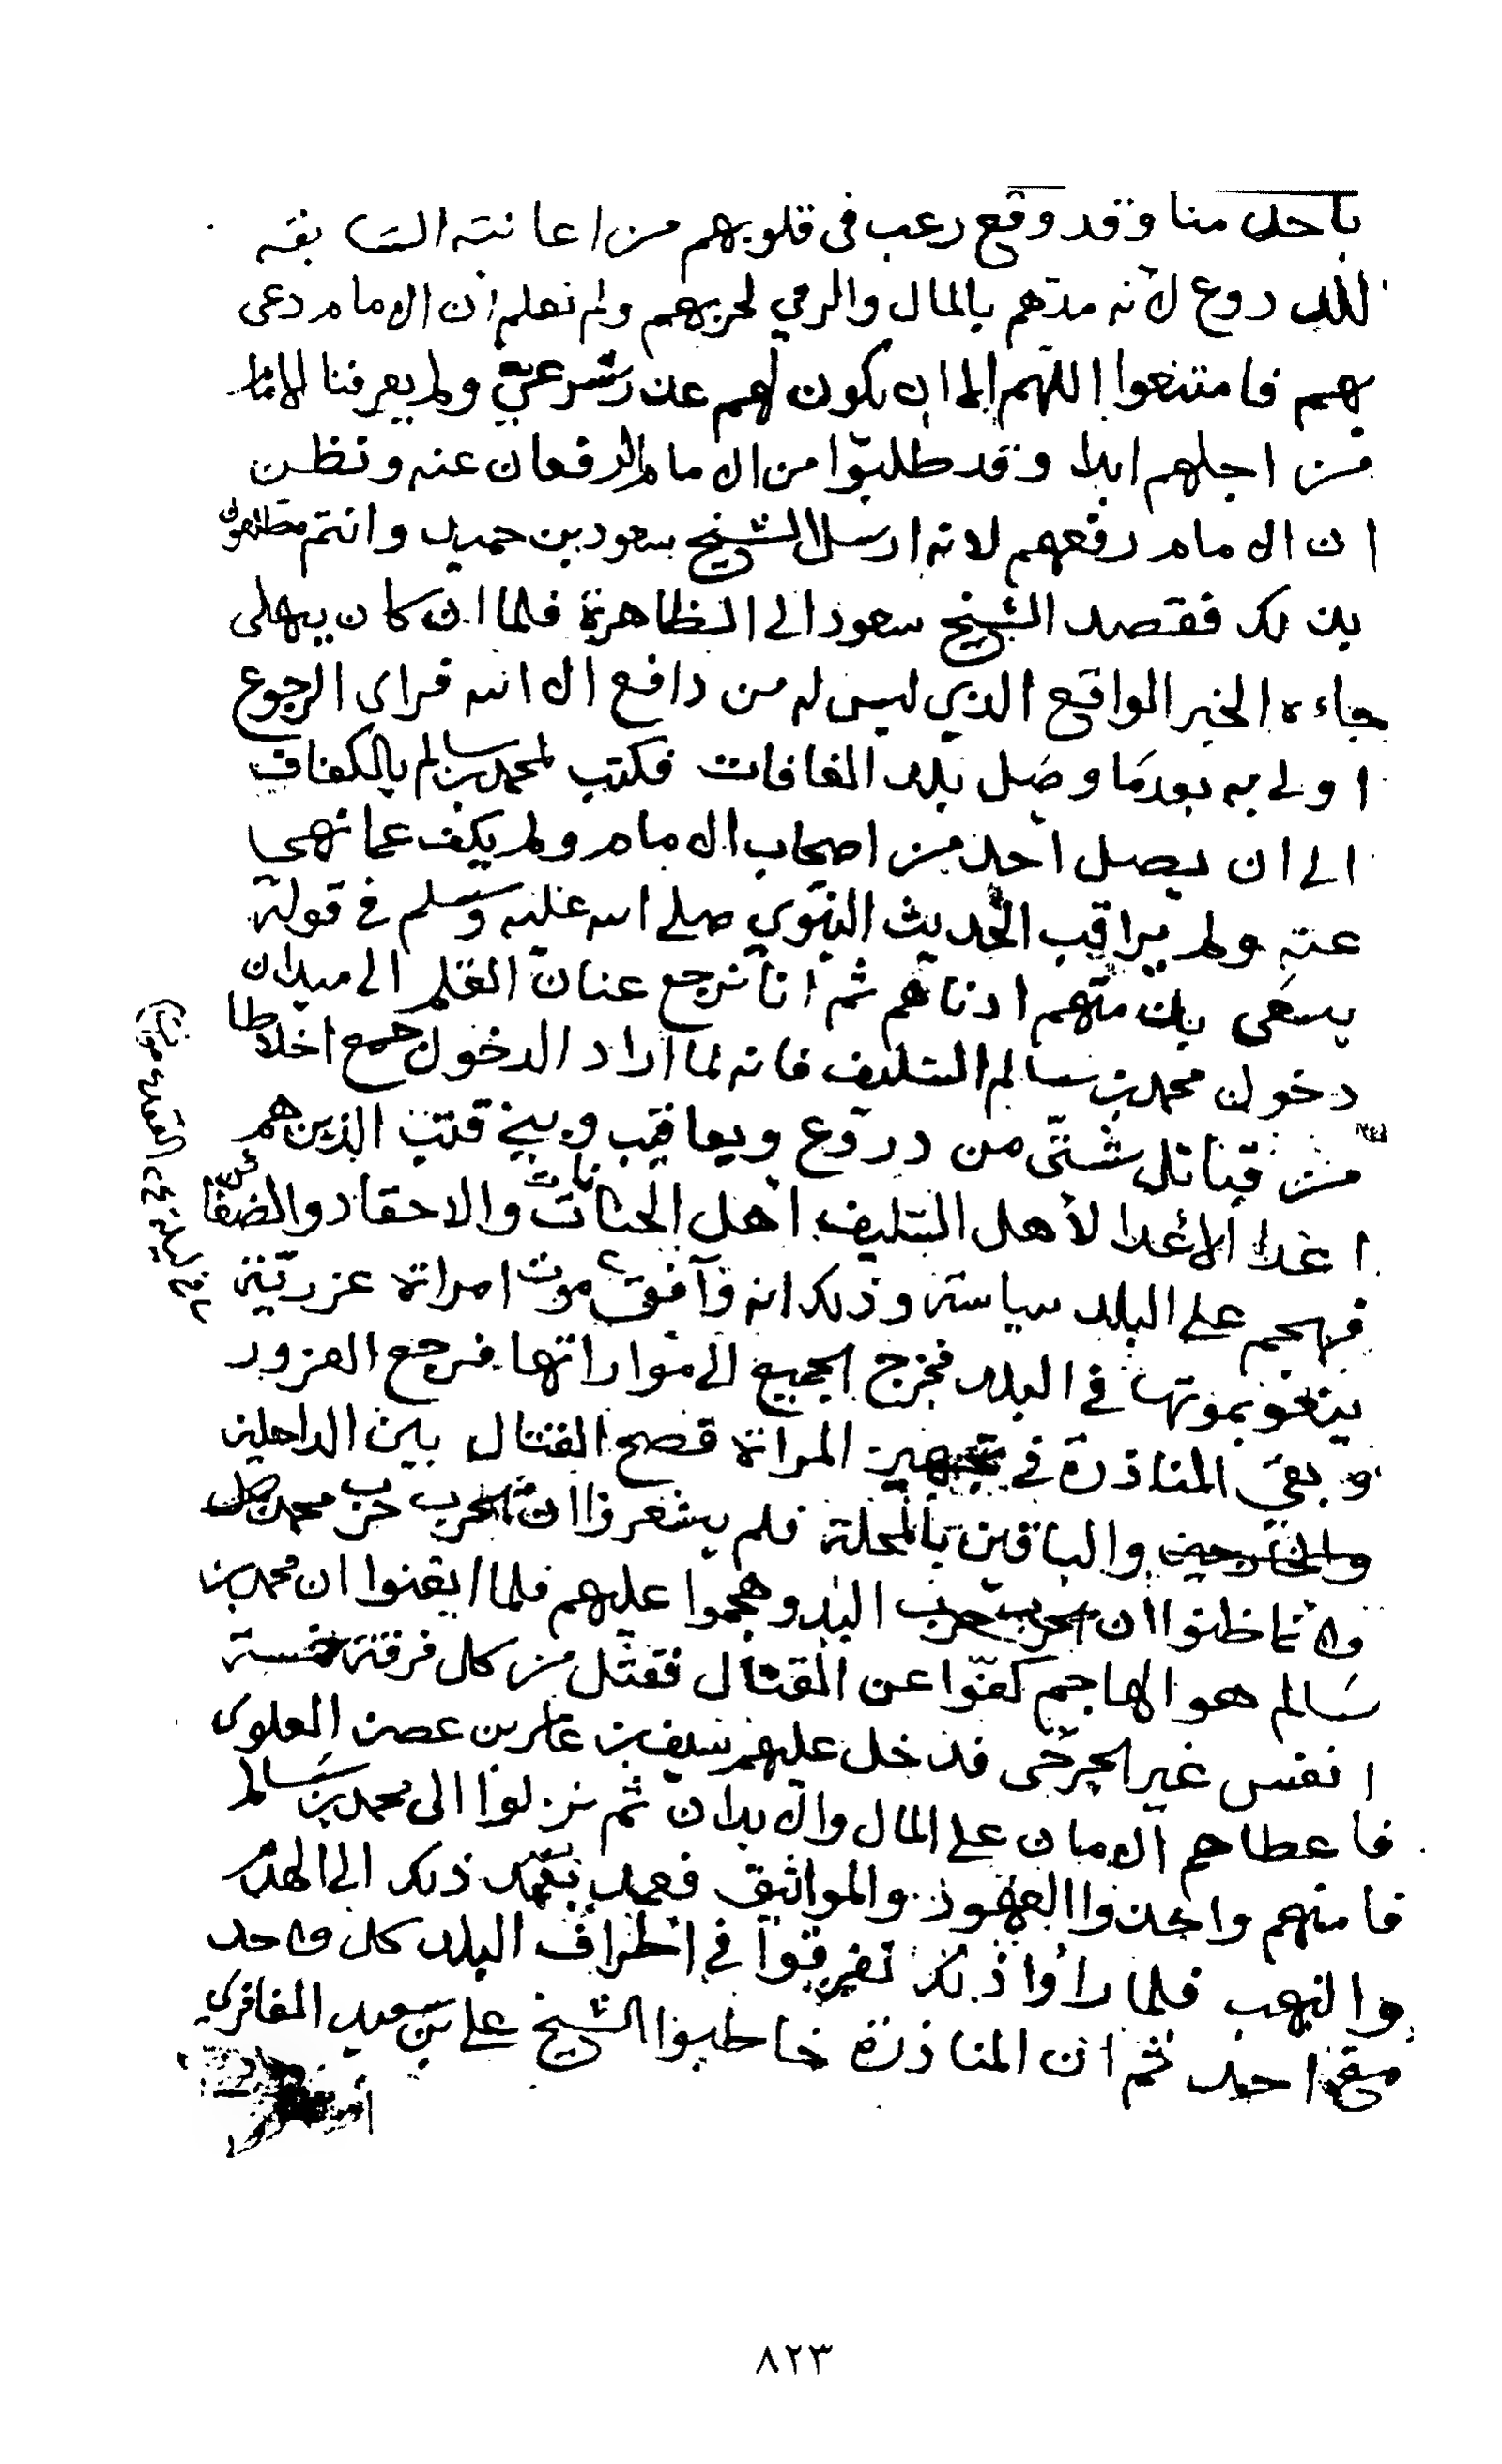 باحد منا وقد وقع رعب فى قلوبهم من اعانته السابقه
للدروع لانه مدهم بالمال والرمي لحربهم ولم نعلم ان الامام دعى
بهم فامتنعوا اللهم الا ان يكون لهم عذر شرعي ولم يعرفنا الامام
من اجلهم ابدا وقد طلبوا من الامام الرفعان عنه ونظن
ان الامام رفعهم لانه ارسل الشيخ سعود بن حميد وانتم مطلعون
بذلك فقصد الشيخ سعود الى الظاهرة فلما ان كان بهلى
جاءه الخبر الواقع الذي ليس له من دافع الا الله فراى الرجوع
اولى به بعدما وصل بلد الغافات فكتب لمحمد بن سالم بالكفاف
الى ان يصل احد من اصحاب الامام ولم يكف عما نهي
عنه ولم يراقب الحديث النبوي صلى الله عليه وسلم في قوله
يسعى بذمتهم ادناهم ثم انا نرجع عنان القلم الى ميدان
دخول محمد بن سالم السليف فانه لما اراد الدخول جمع اخلاطا
من قبائل شتى من دروع ويعاقيب وبني قتب الذين هم
اعدا الاعدا لأهل السليف اهل الحنات والاحقاد والضغائن
فهجم على البلد سياسة وذلك انه وافق موت امراة عزرية
بموتها في البلد فخرج الجميع الى مواراتها فرجع العزور
وبقي المناذرة في تجهيز المراة فصح القتال بين الداخلين
والخارجين والباقين بالمحلة فلم يشعروا ان الحرب حرب محمد بن سالم
وانما ظنوا ان الحرب حرب البدو هجموا عليهم فلما ايقنوا ان محمد بن
سالم هو الهاجم كفوا عن القتال فقتل من كل فرقة خمسة
انفس غير الجرحى فدخل عليهم سيف بن عامر بن غصن العلوي
فاعطاهم الامان على المال والابدان ثم نزلوا الى محمد بن سالم
فامنهم واخذوا العهود والمواثيق فعمد بعد ذلك الى الهدم
والنهب فلما راوا ذلك تفرقوا في اطراف البلد كل واحد
مع احد ثم ان المناذرة خاطبوا الشيخ علي بن سعيد الغافري
٨٢٣